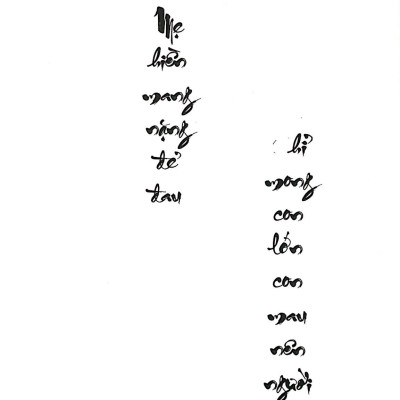 Mẹ
hiền
mang
nặng
đẻ
đau
hỉ
mong
con
lớn
con
mau
nên
người